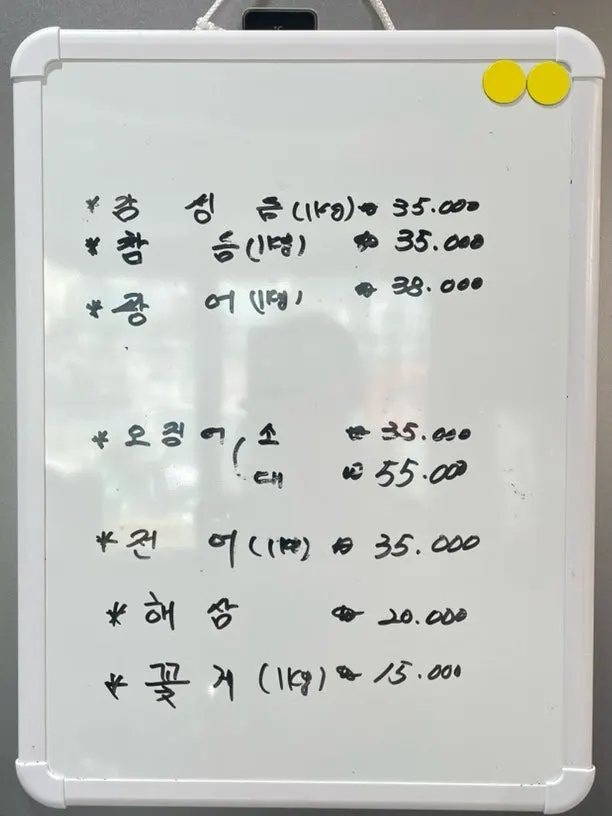 * 감 성 돔 (1kg) ₩ 35.000
* 참 돔 (1kg) ₩ 35.000
* 광 어 (1kg) ₩ 38.000
* 오 징 어 ( 소 ₩ 35.000
대 ₩ 55.000
* 전 어 (1kg) ₩ 35.000
* 해 삼 ₩ 20.000
* 꽃 게 (1kg) ₩ 15.000